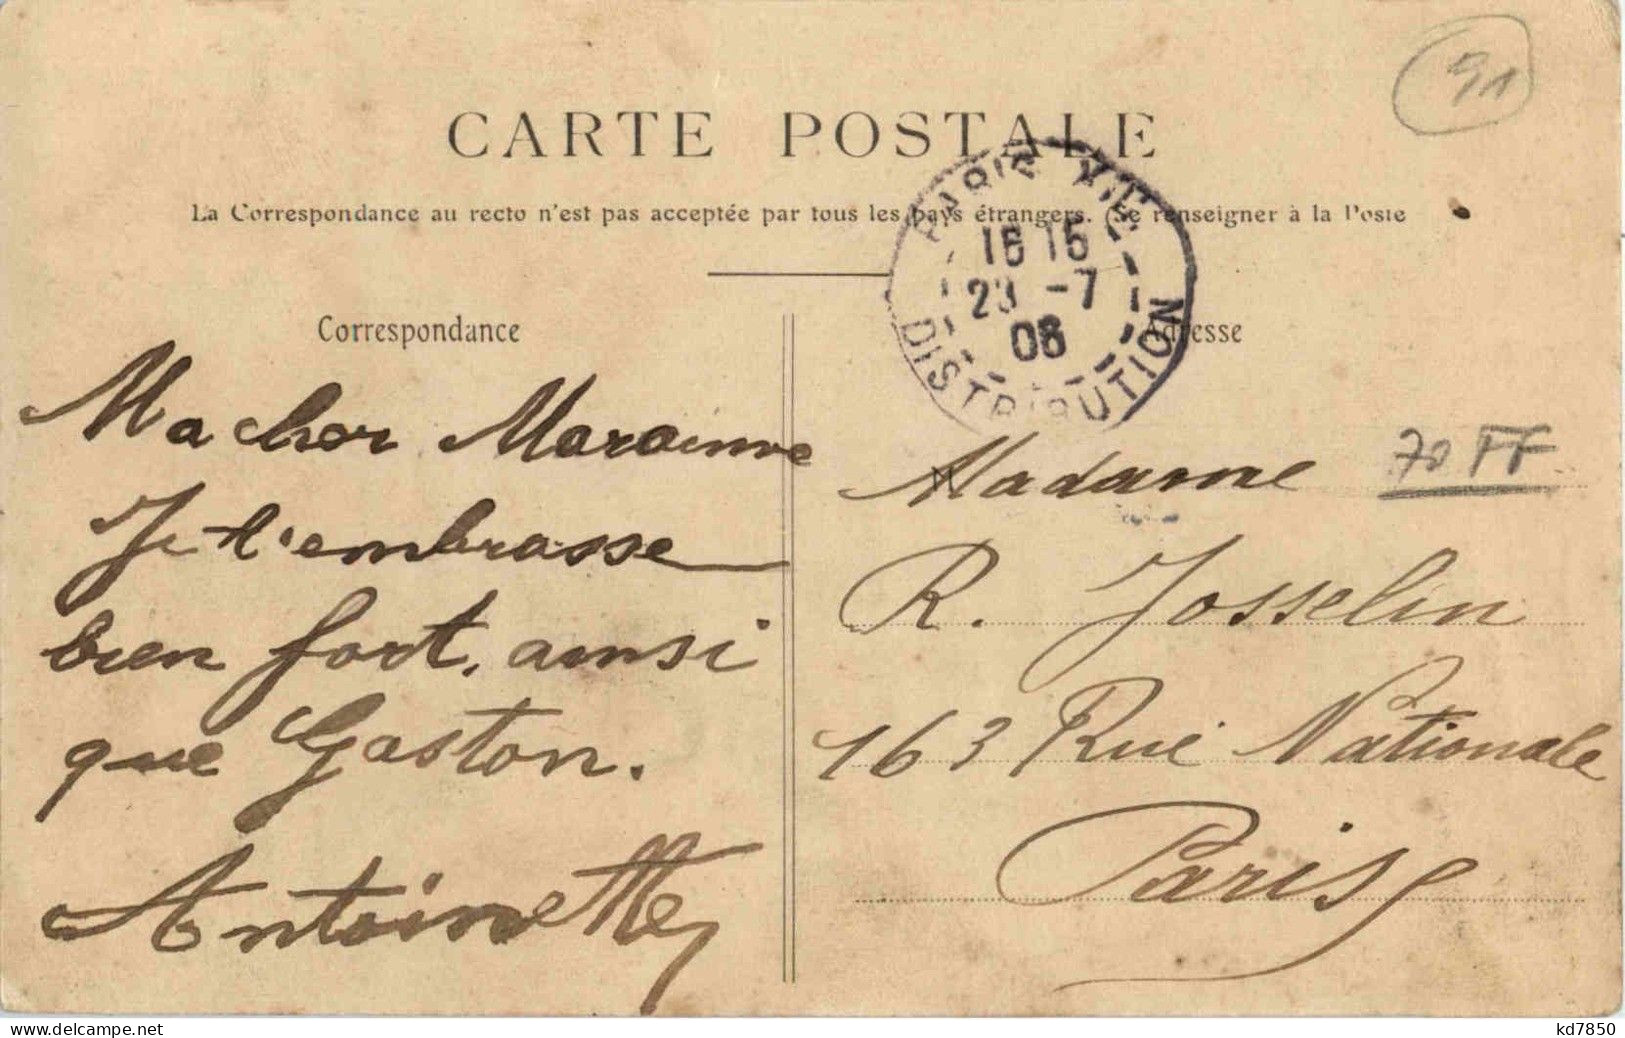 91
CARTE POSTALE
La Correspondance au recto n'est pas acceptée par tous les pays étrangers. (Se renseigner à la Poste
PARIS XIII
16 15
23 -7
08
DISTRIBUTION
Correspondance
Ma cher Maraine
Je t'embrasse
bien fort, ainsi
que Gaston.
Antoinette
Adresse
70 FF
Madame
R. Josselin
163 Rue Nationale
Paris
delcampe.net
kd7850